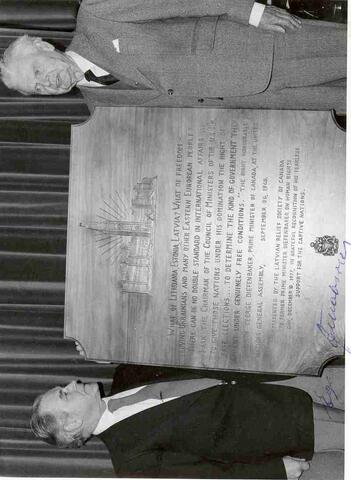 "WHAT OF LITHUANIA ESTONIA LATVIA? WHAT OF FREEDOM-
LOVING UKRAINIANS AND MANY OTHER EASTERN EUROPEAN PEOPLE?
THERE CAN BE NO DOUBLE STANDARD IN INTERNATIONAL AFFAIRS
I ASK THE CHAIRMAN OF THE COUNCIL OF MINISTERS OF THE U.S.S.R.
TO GIVE THOSE NATIONS UNDER HIS DOMINATION THE RIGHT OF
ELECTIONS ... TO DETERMINE THE KIND OF GOVERNMENT THEY
WANT UNDER GENUINELY FREE CONDITIONS." THE RIGHT HONORABLE
GEORGE DIEFENBAKER, PRIME MINISTER OF CANADA AT THE UNITED
GENERAL ASSEMBLY, SEPTEMBER 26, 1960.
PRESENTED BY THE LATVIAN RELIEF SOCIETY OF CANADA
TO FORMER PRIME MINISTER DIEFENBAKER ON HUMAN RIGHTS
DAY, DECEMBER 9, 1977, IN GRATEFUL RECOGNITION OF HIS FEARLESS
SUPPORT FOR THE CAPTIVE NATIONS.